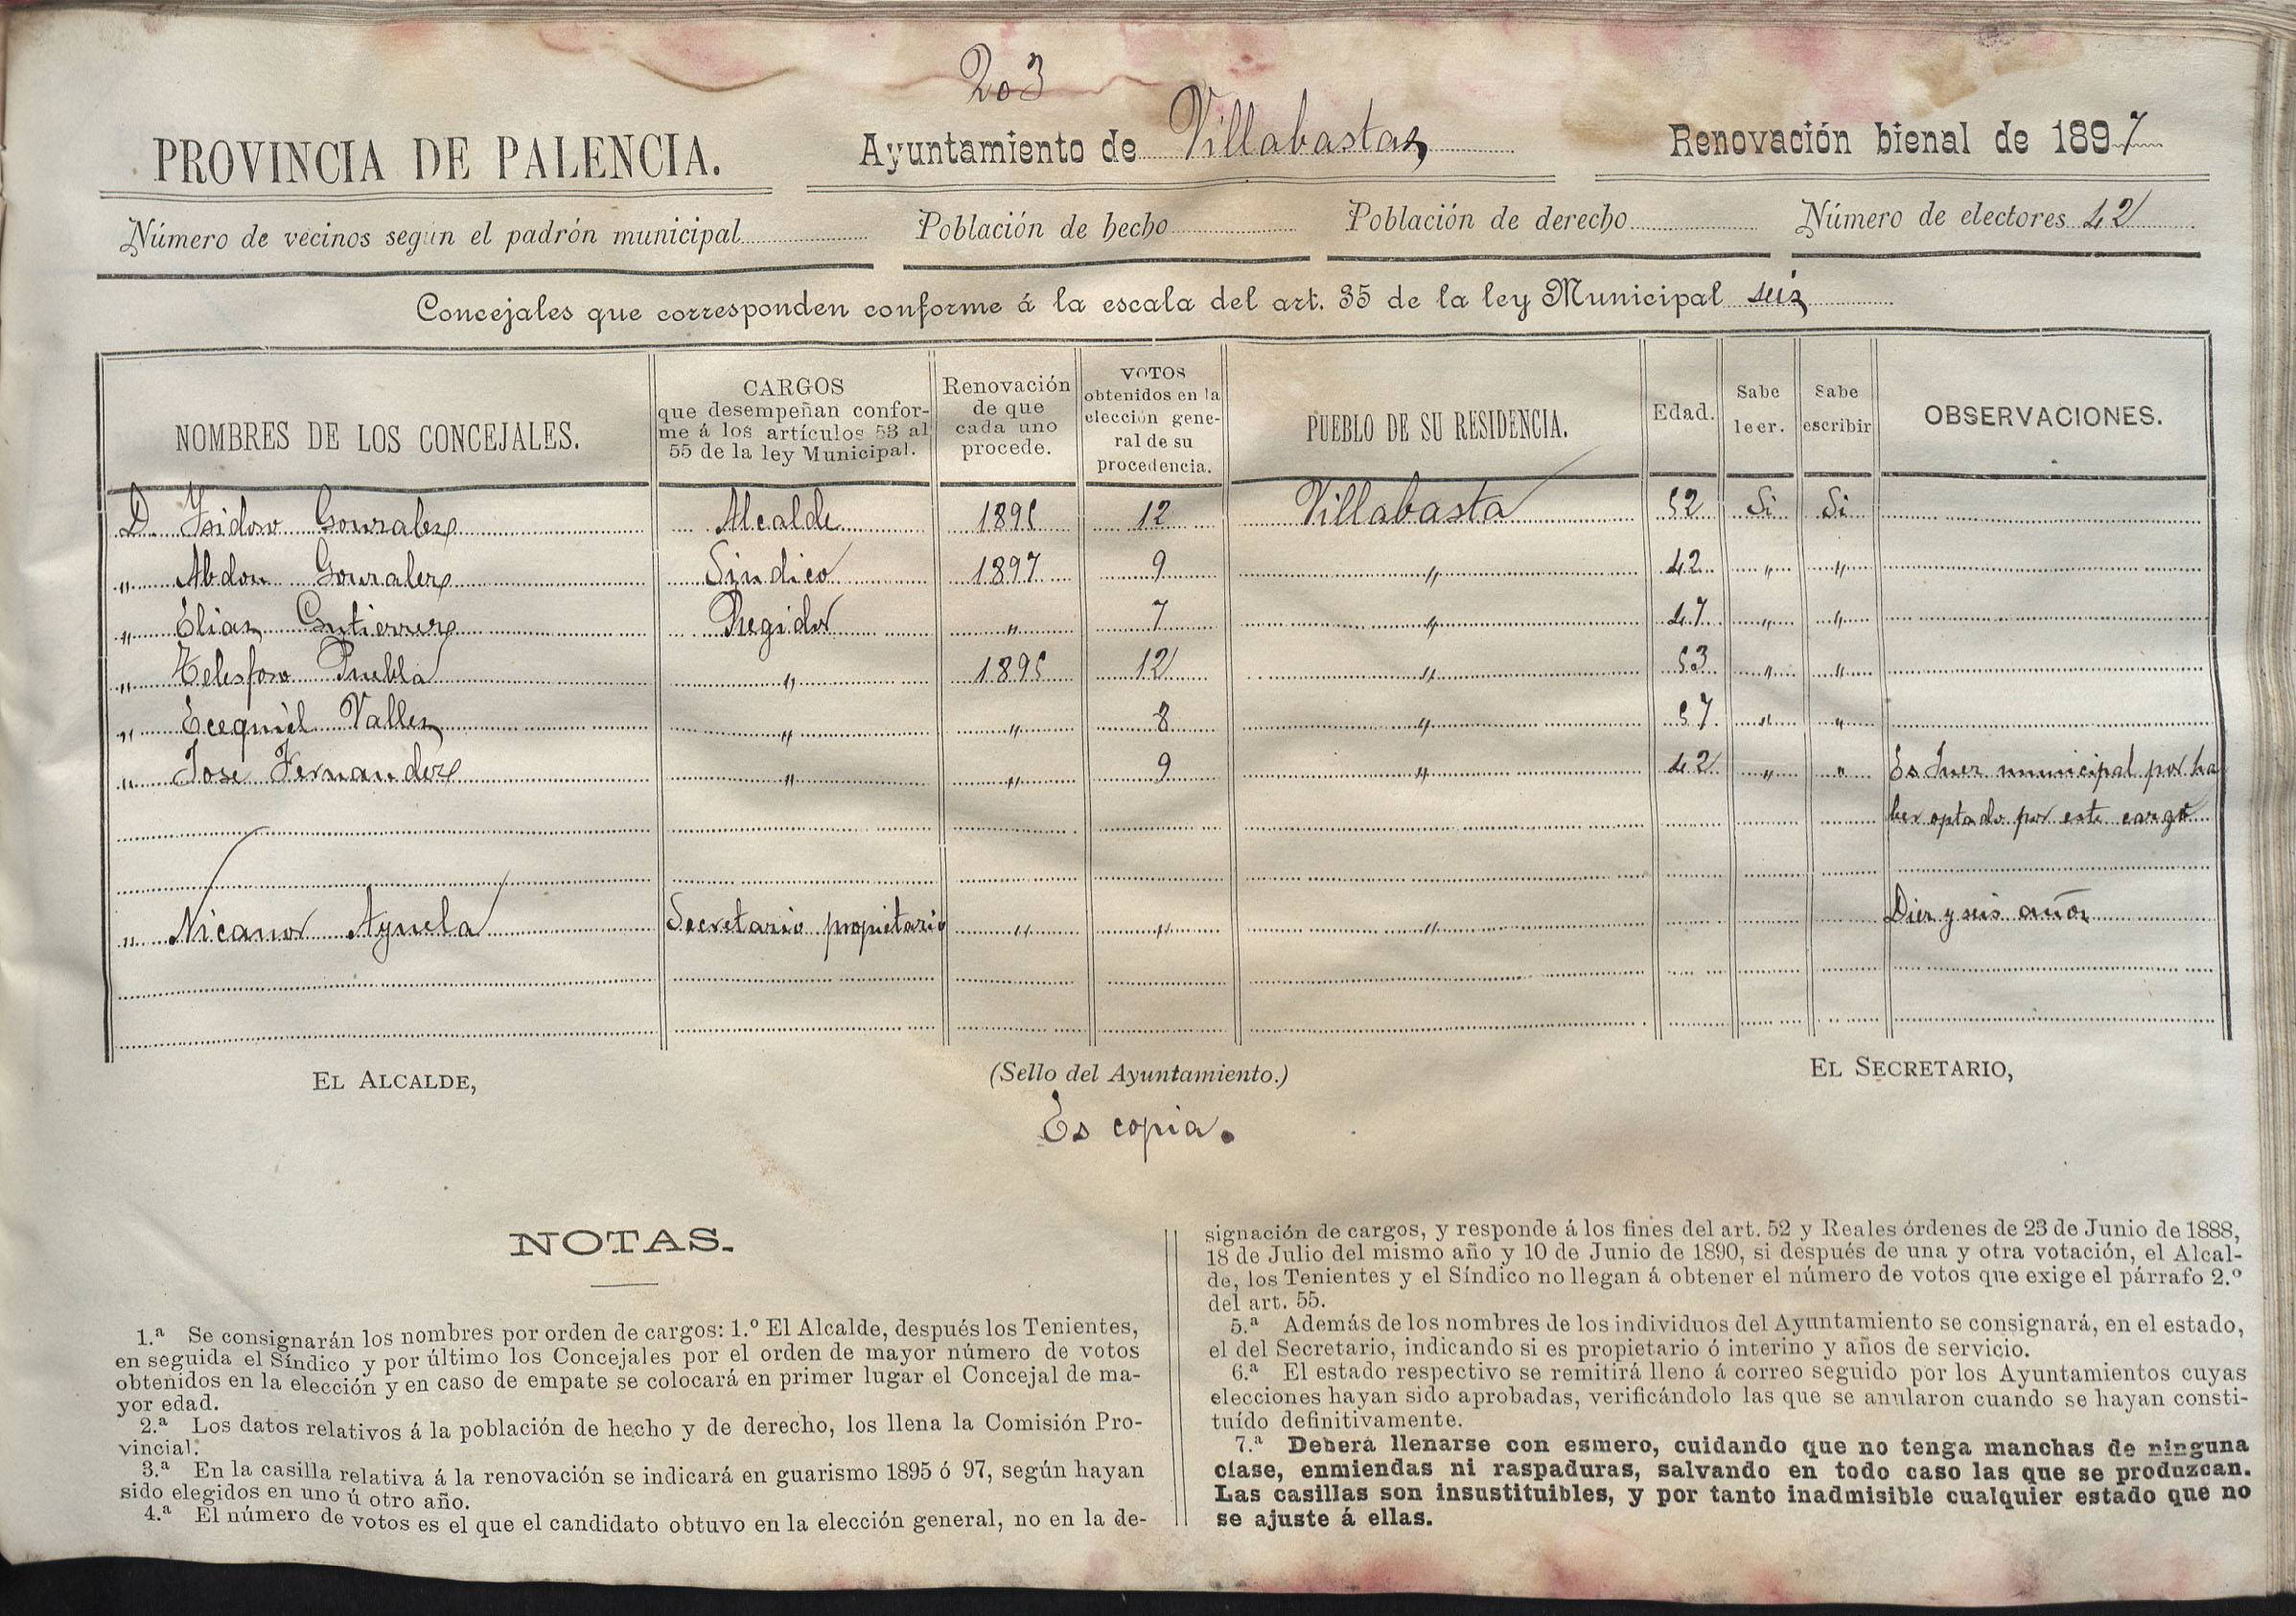 203
PROVINCIA DE PALENCIA. Ayuntamiento de Villabastas Renovación bienal de 1897
Número de vecinos según el padrón municipal Población de hecho Población de derecho Número de electores 42
Concejales que corresponden conforme á la escala del art. 35 de la ley Municipal seis
NOMBRES DE LOS CONCEJALES. CARGOS que desempeñan conforme á los artículos 53 al 55 de la ley Municipal. Renovación de que cada uno procede. VOTOS obtenidos en la elección general de su procedencia. PUEBLO DE SU RESIDENCIA. Edad. Sabe leer. Sabe escribir OBSERVACIONES.
D. Ysidoro Gonzalez Alcalde 1895 12 Villabasta 52 Si Si
" Abdon Gonzalez Sindico 1897 9 " 42 " "
" Elias Gutierrez Regidor " 7 " 47 " "
" Telesforo Puebla " 1895 12 " 53 " "
" Ecequiel Valles " " 8 " 57 " "
" Jose Fernandez " " 9 " 42 " " Es Juez municipal por ha
ber optado por este cargo
" Nicanor Ayuela Secretario propietario " " " Diez y seis años
EL ALCALDE, (Sello del Ayuntamiento.) EL SECRETARIO,
Es copia.
NOTAS.
1.ª Se consignarán los nombres por orden de cargos: 1.º El Alcalde, después los Tenientes,
en seguida el Síndico y por último los Concejales por el orden de mayor número de votos
obtenidos en la elección y en caso de empate se colocará en primer lugar el Concejal de ma-
yor edad.
2.ª Los datos relativos á la población de hecho y de derecho, los llena la Comisión Pro-
vincial.
3.ª En la casilla relativa á la renovación se indicará en guarismo 1895 ó 97, según hayan
sido elegidos en uno ú otro año.
4.ª El número de votos es el que el candidato obtuvo en la elección general, no en la de-
signación de cargos, y responde á los fines del art. 52 y Reales órdenes de 23 de Junio de 1888,
18 de Julio del mismo año y 10 de Junio de 1890, si después de una y otra votación, el Alcal-
de, los Tenientes y el Síndico no llegan á obtener el número de votos que exige el párrafo 2.º
del art. 55.
5.ª Además de los nombres de los individuos del Ayuntamiento se consignará, en el estado,
el del Secretario, indicando si es propietario ó interino y años de servicio.
6.ª El estado respectivo se remitirá lleno á correo seguido por los Ayuntamientos cuyas
elecciones hayan sido aprobadas, verificándolo las que se anularon cuando se hayan consti-
tuído definitivamente.
7.ª Deberá llenarse con esmero, cuidando que no tenga manchas de ninguna
clase, enmiendas ni raspaduras, salvando en todo caso las que se produzcan.
Las casillas son insustituibles, y por tanto inadmisible cualquier estado que no
se ajuste á ellas.